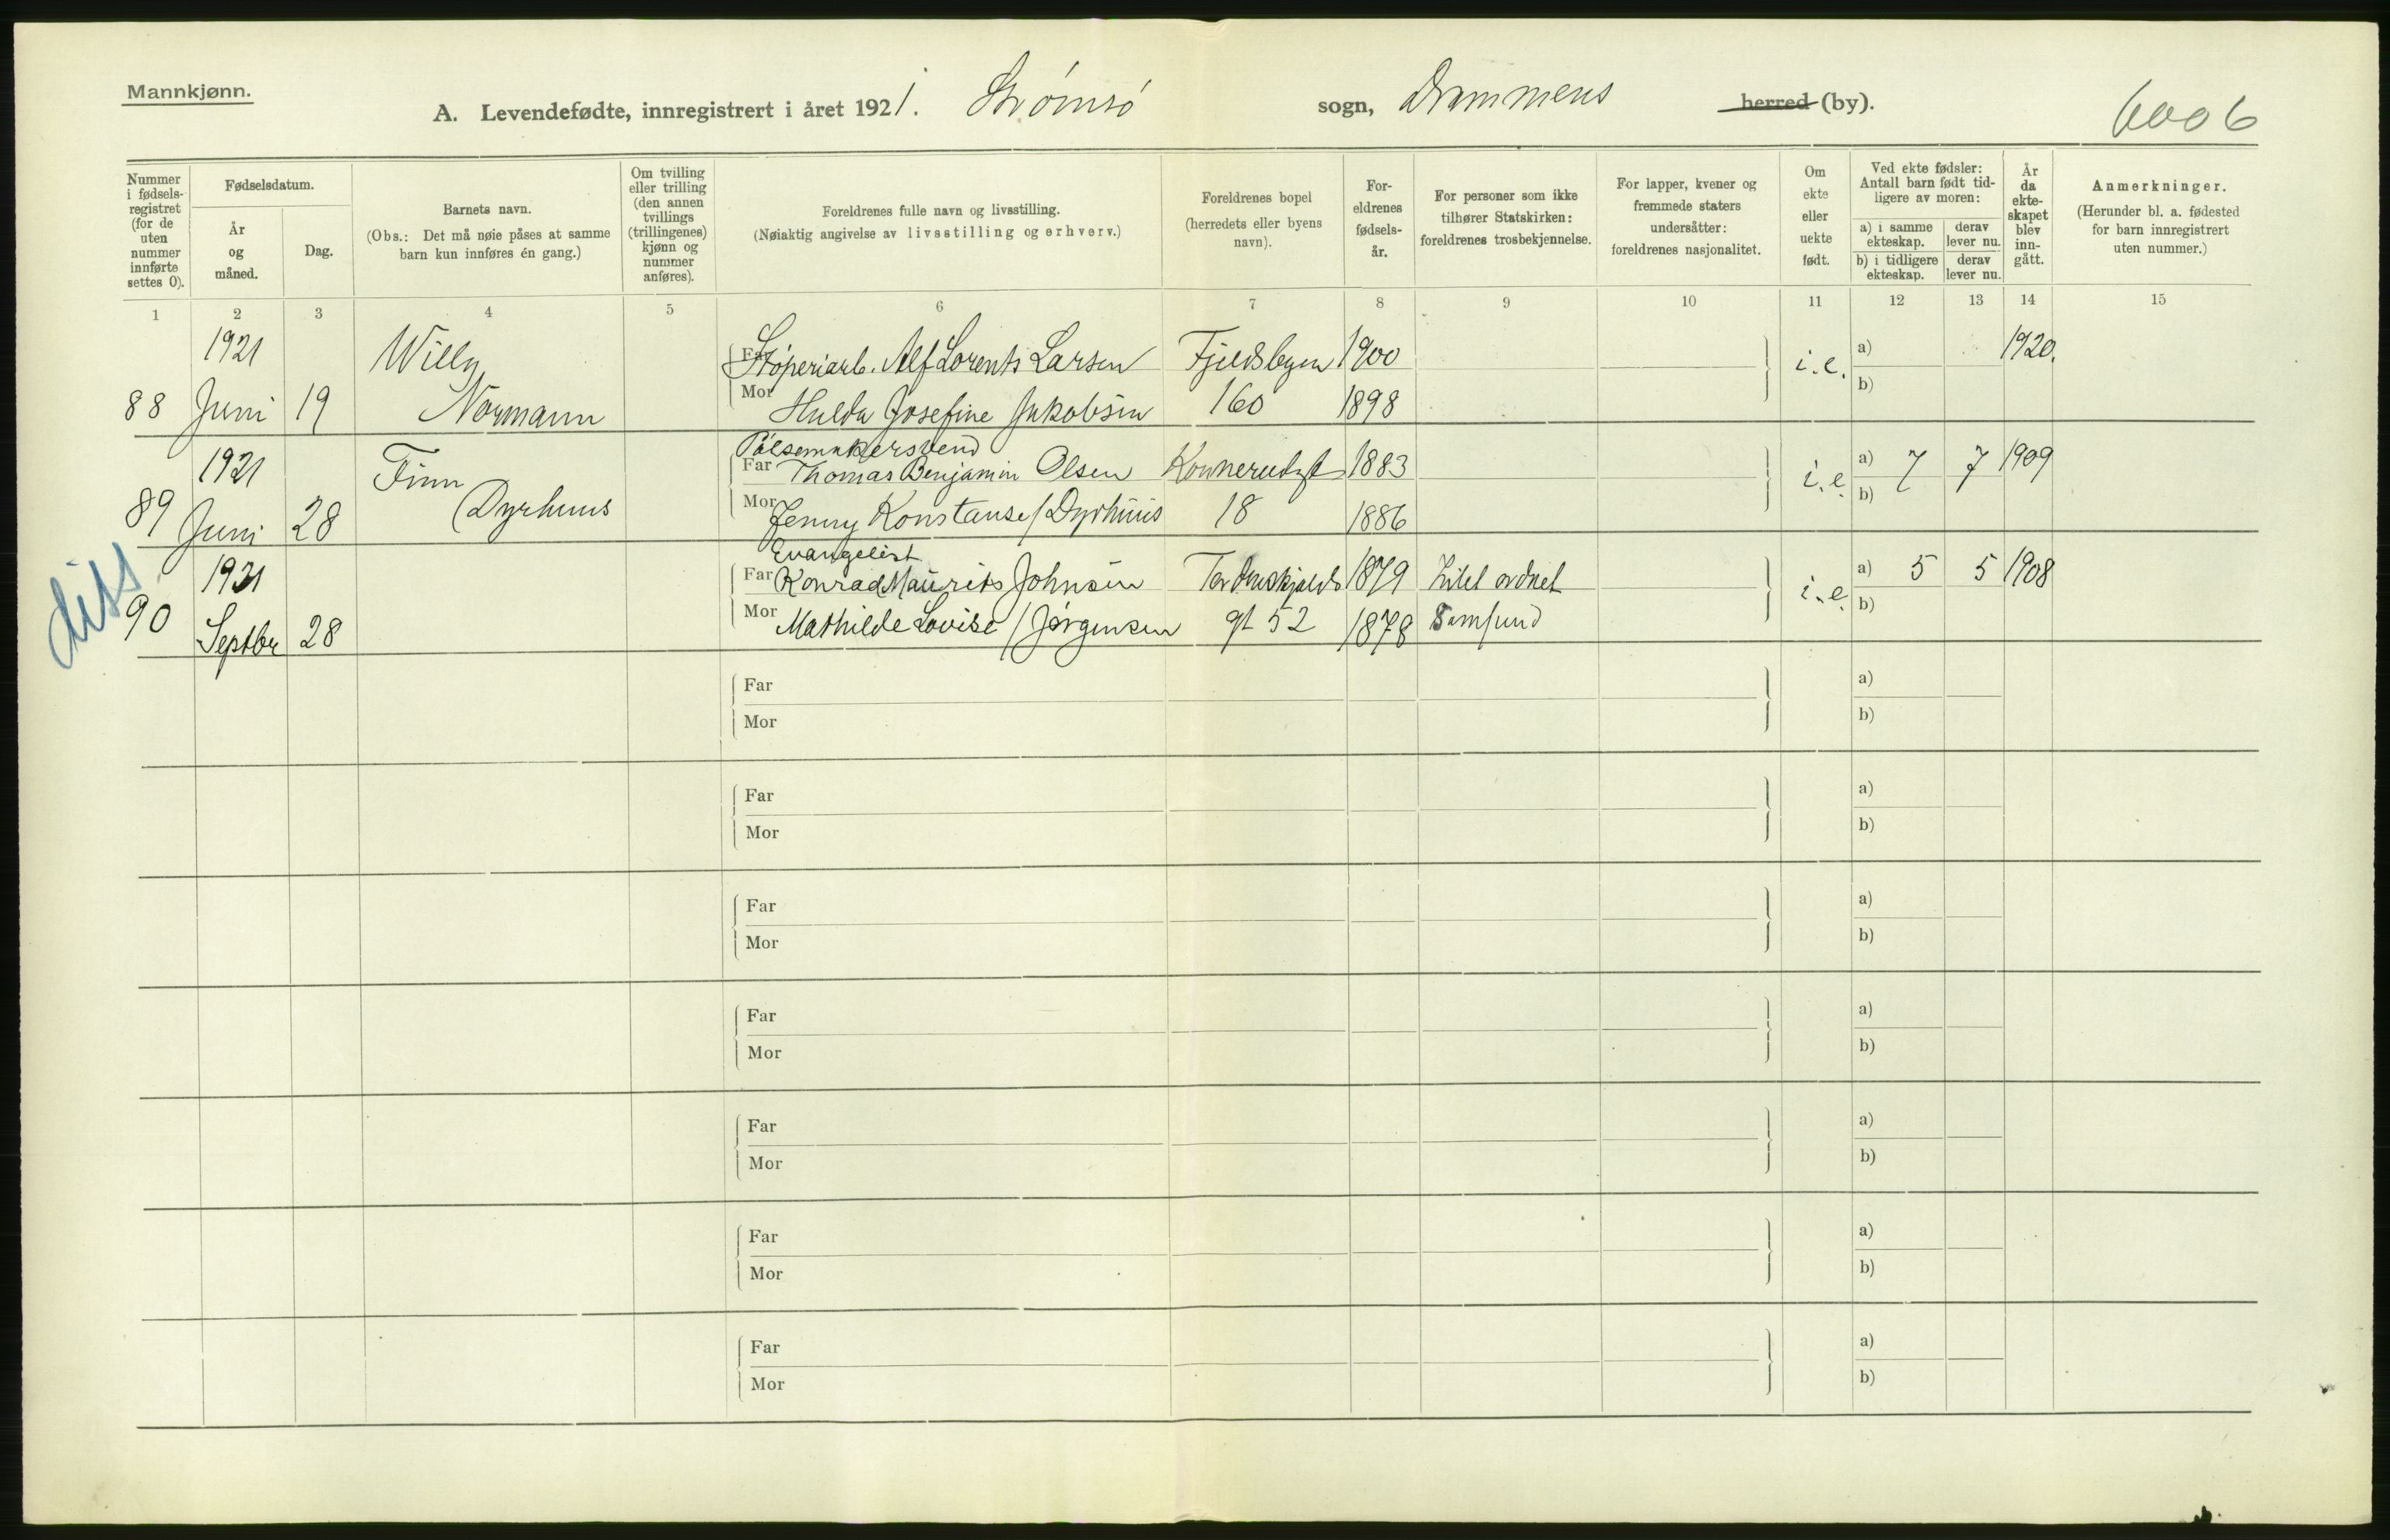 Mannkjønn.
A. Levendefødte, innregistrert i året 1921. Strømsø sogn, Drammens herred (by).
6006
Nummer i fødsels-registret (for de uten nummer innførte settes 0).
Fødselsdatum.
År og måned.
Dag.
Barnets navn.
(Obs.: Det må nøie påses at samme barn kun innføres én gang.)
Om tvilling eller trilling (den annen tvillings (trillingenes) kjønn og nummer anføres).
Foreldrenes fulle navn og livsstilling.
(Nøiaktig angivelse av livsstilling og erhverv.)
Foreldrenes bopel
(herredets eller byens navn).
For-eldrenes fødsels-år.
For personer som ikke tilhører Statskirken: foreldrenes trosbekjennelse.
For lapper, kvener og fremmede staters undersåtter: foreldrenes nasjonalitet.
Om ekte eller uekte født.
Ved ekte fødsler: Antall barn født tid-ligere av moren:
a) i samme ekteskap.
derav lever nu.
b) i tidligere ekteskap.
derav lever nu.
År da ekte-skapet blev inn-gått.
Anmerkninger.
(Herunder bl. a. fødested for barn innregistrert uten nummer.)
1 2 3 4 5 6 7 8 9 10 11 12 13 14 15
1921 Willy Far Støperiarb. Alf Lorents Larsen Fjeldsbyen 1900 i.e. a) 1920.
88 Juni 19 Normann Mor Hulda Josefine Jakobsen 160 1898 b)
Pølsemakersvend
1921 Finn Far Thomas Benjamin Olsen Konnerudgt 1883 i.e. a) 7 7 1909
89 Juni 28 Dyrhuus Mor Jenny Konstanse / Dyrhuus 18 1886 b)
Evangelist
diss
1921 Far Konrad Maurits Johnsen Tordenskjolds 1879 i.e. a) 5 5 1908
90 Septbr 28 Mor Mathilde Lovise / Jørgensen gt 52 1878 Samfund b)
Far a)
Mor b)
Far a)
Mor b)
Far a)
Mor b)
Far a)
Mor b)
Far a)
Mor b)
Far a)
Mor b)
Far a)
Mor b)